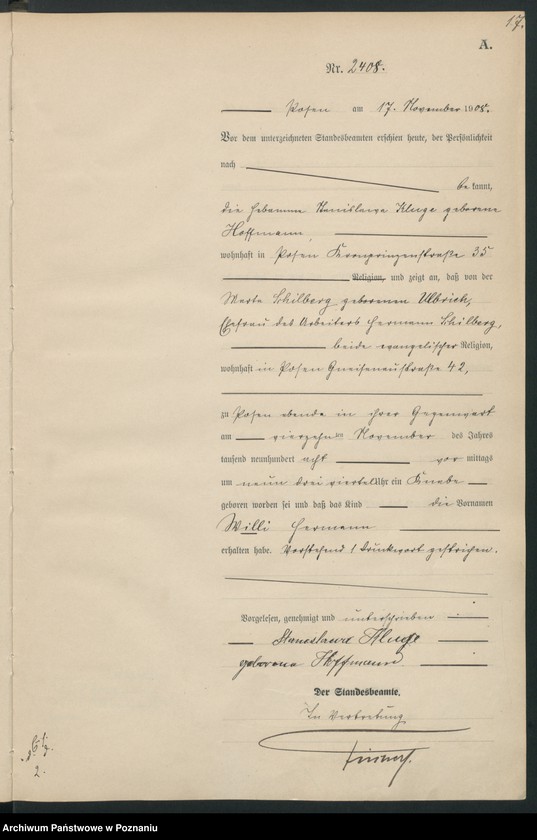 17.
A.
Nr. 2408.
Posen am 17. November 1908.
Vor dem unterzeichneten Standesbeamten erschien heute, der Persönlichkeit
nach
be kannt,
die Hebamme Stanislawa Kluge geborene
Hoffmann,
wohnhaft in Posen Kronprinzenstraße 35
Religion, und zeigt an, daß von der
Marta Schilberg geborenen Ulbrich,
Ehefrau des Arbeiters Hermann Schilberg,
beide evangelischer Religion,
wohnhaft in Posen Gneisenaustraße 42,
zu Posen ebenda in ihrer Gegenwart
am vierzehn ten November des Jahres
tausend neunhundert acht vor mittags
um neun drei viertel Uhr ein Knabe
geboren worden sei und daß das Kind die Vornamen
Willi Hermann
erhalten habe. Vorstehend 1 Druckwort gestrichen.
Vorgelesen, genehmigt und unterschrieben
Stanislawa Kluge
geborene Hoffmann
Der Standesbeamte.
In Vertretung
Archiwum Państwowe w Poznaniu